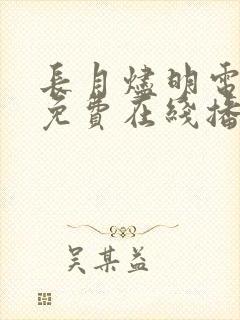 長月燼明電
免費在綫播
吴某益